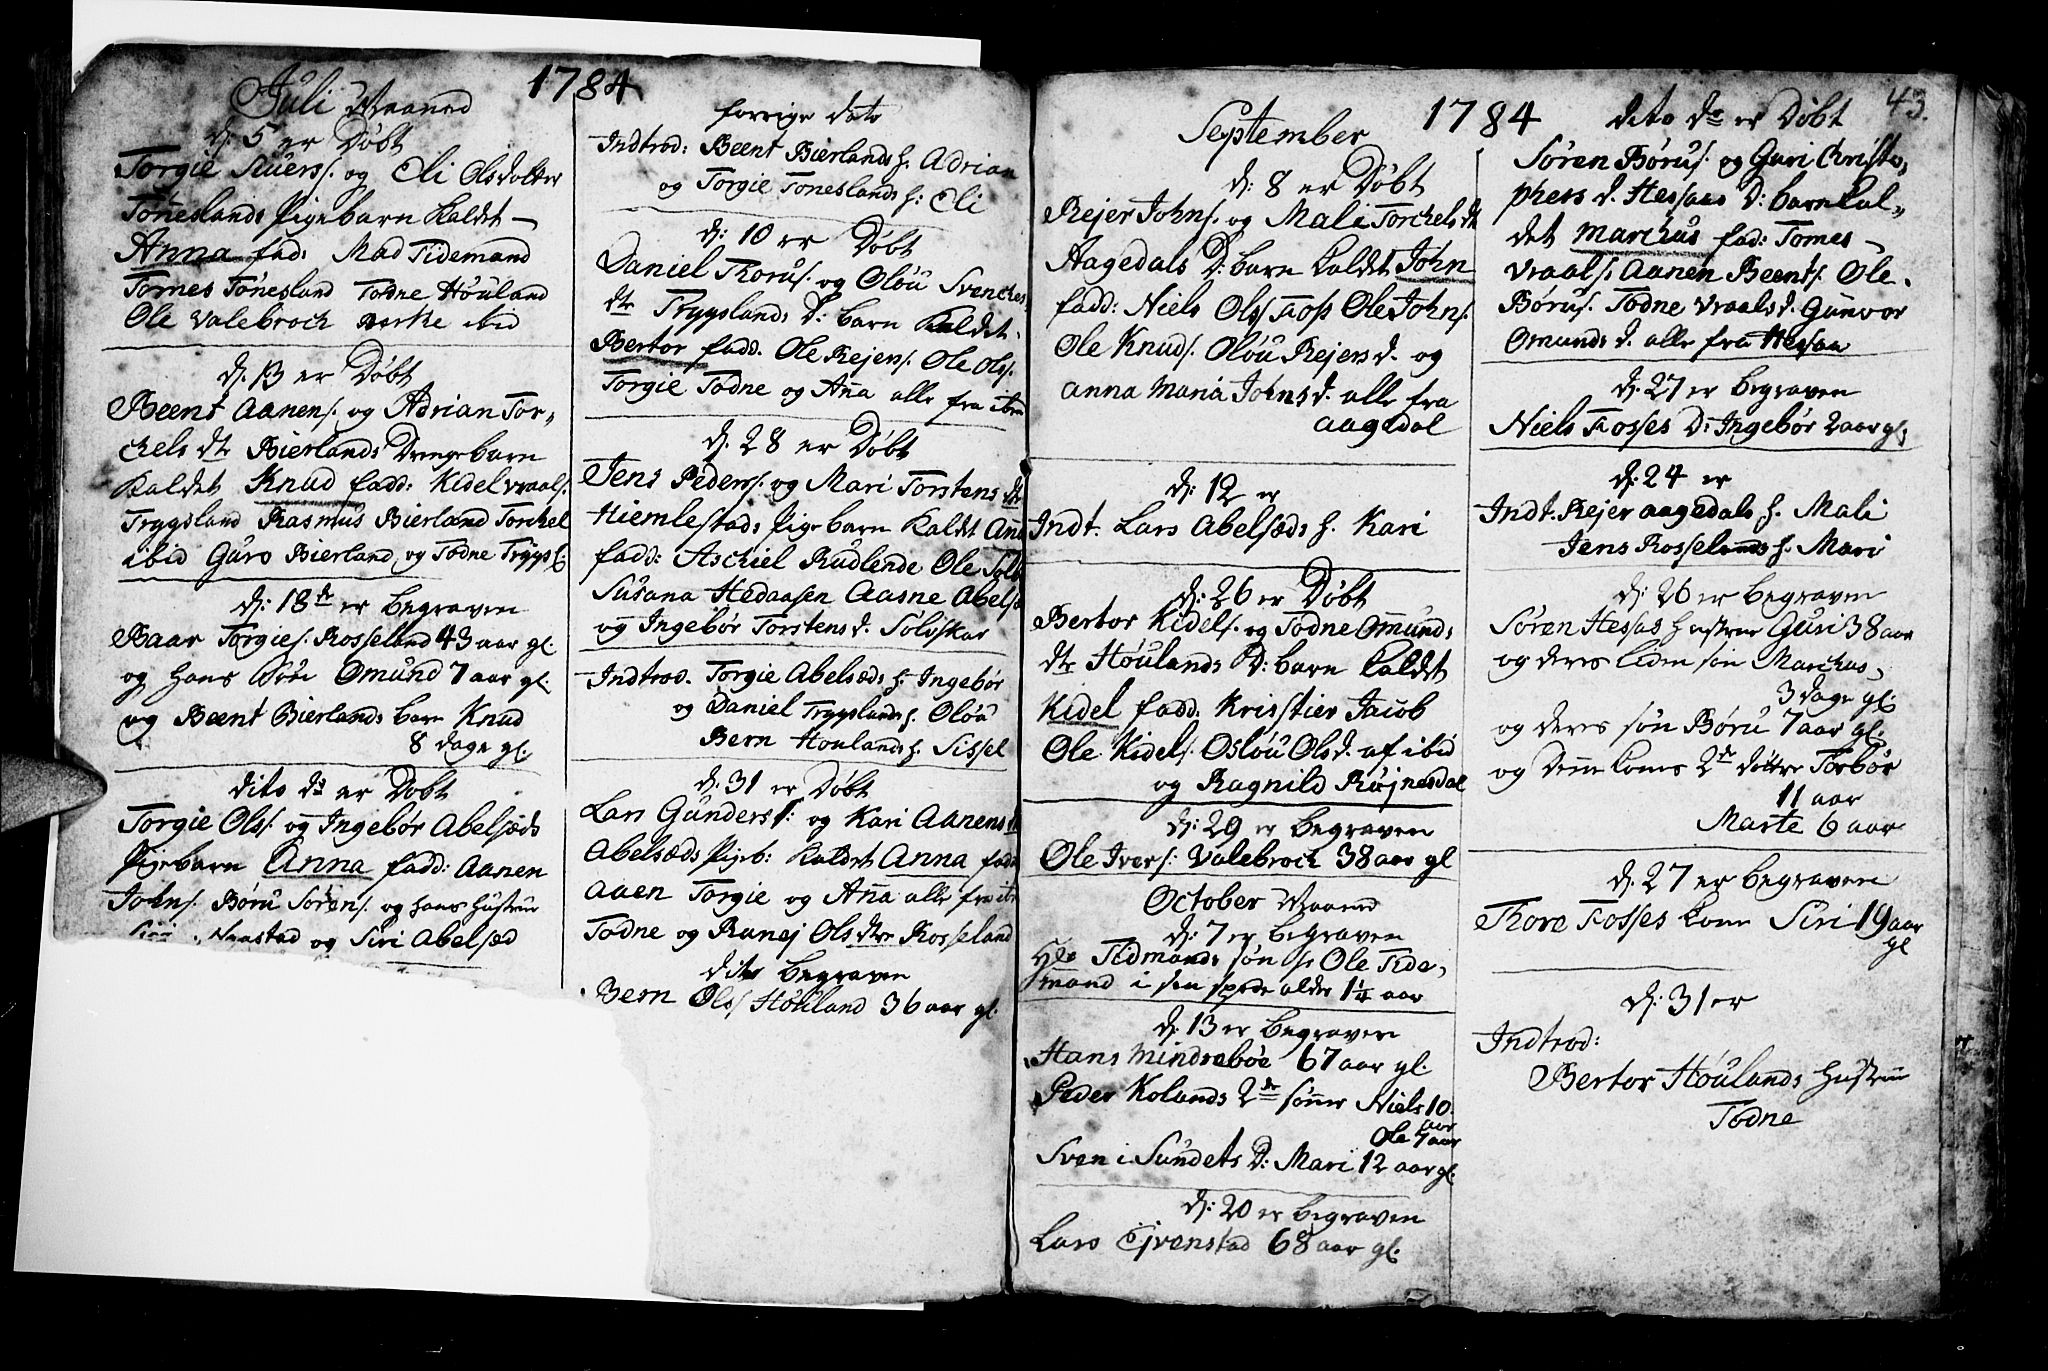 1784
Juli Maaned
d: 5 er Døbt
Torgie Siuers/. og Eli Olsdolter
Tønneslands Pigebarn kaldet
Anna fad: Mad Tidemand
Tomes Tønesland Todne Høuland
Ole Valebroch ibid
d: 13 er Døbt
Beent Aanens/. og Adrian Tor-
chels dtr Bierlands Drengebarn
kaldet Knud fadd: Kidel Vraals/.
Trygsland Rasmus Bierland Torchel
ibid Guro Bierland og Todne Trÿgsl:
d: 18de er begraven
Baar Torgies/. Rosseland 43 aar gl.
og hans Omund 7 aar gl.
og Beent Bierlands barn Knud
8 dage gl.
dito ds er Døbt
Torgie Ols/. og Ingebør Abelsæds
Pigebarn Anna fadd: Aanen
Johns/. Børu Sørens/. og hans hustrue
og Siri Abelsæd
forrige dato
Indtrod: Beent Bierlands h. Adrian
og Torgie Toneslands h: Eli
d: 10 er Døbt
Daniel Thorus/. og Oløu Svenches
dtr Trygslands D: barn kaldet
Bertor fadd. Ole Rejers/. Ole Ols/.
Torgie Todne og Ana alle fra ibm
d. 28 er Døbt
Jens Peders/. og Mari Torstens dtr
Hiemlestads Pigebarn kaldet Ana
fadd: Aschiel Rudlende Ole
Susana Hedaasen Aasne Abelsæ
og Ingebør Torstens d. Soloskar
Indtrod. Torgie Abelsæds h. Ingebør
og Daniel Trygslands h. Oløu
Bern Høulands h. Sissel
d. 31 er Døbt
Lars Gunders/: og Kari Aanens d
Abelsæds Pigeb: kaldet Anna fadd
Aaen Torgie og Ana alle fra ibm
Todne og Ranej Olsdtre Rosseland
dito begraven
Bern Ols/ Høuland 36 aar gl.
1784
43.
September
d: 8 er Døbt
Rejer Johns/. og Mali Torchels dtr
Aagedals D: barn kaldet John
fadd: Niels Ols/ Foss Ole Johns/.
Ole Knuds/. Oløu Rejers d. og
anna Maria Johns d. alle fra
aagedal
d: 12 er
Indt. Lars Abelsæds h. Kari
d: 26 er Døbt
Bertor Kidels/. og Todne Omunds
dtr Høulands D: barn kaldet
Kidel fadd. Kristier Jacob
Ole Kidels/. Osløu Ols d. af ibid
og Ragnild Røjnesdal
d: 29 er begraven
Ole Ivers/: Valebroch 38 aar gl
October Maaned
d: 7 er begraven
Tidmands søn Ole Tide-
mand i sin spæde alder 1¼ aar
d: 13 er begraven
Hans Mindrebøe 67 aar gl.
Peder Kolands 2de sønner Niels 10
aar
Ole 7 aar
Sven i Sundets D: Mari 12 aar gl.
d: 20 er begraven
Lars Ejvenstad 68 aar gl.
dito ds er Døbt
Søren Børus/. og Guri Christo-
phers d. Hessaas D: barn kal-
det Marchus fad: Tomes
Vraals/: Aanen Beents/. Ole
Børus/. Todne Vraals d. Gunvor
Omunds d. alle fra Hessaa
d: 27 er begraven
Niels Fosses D: Ingebør 2 aar gl:
d: 24 er
Indt. Rejer aagedals h. Mali
Jens Rosselands h. Mari
d: 26 er begraven
Søren Hessas hustrue Guri 38 aar
og deres liden søn Marchus
3 dage gl.
og deres søn Børu 7 aar gl.
og 2de døttre Torbør
11 aar
Marte 6 aar
d: 27 er begraven
Thore Fosses Kone Siri 19 aar
gl
d: 31 er
Indtrod:
Bertor Høulands Hustrue
Todne